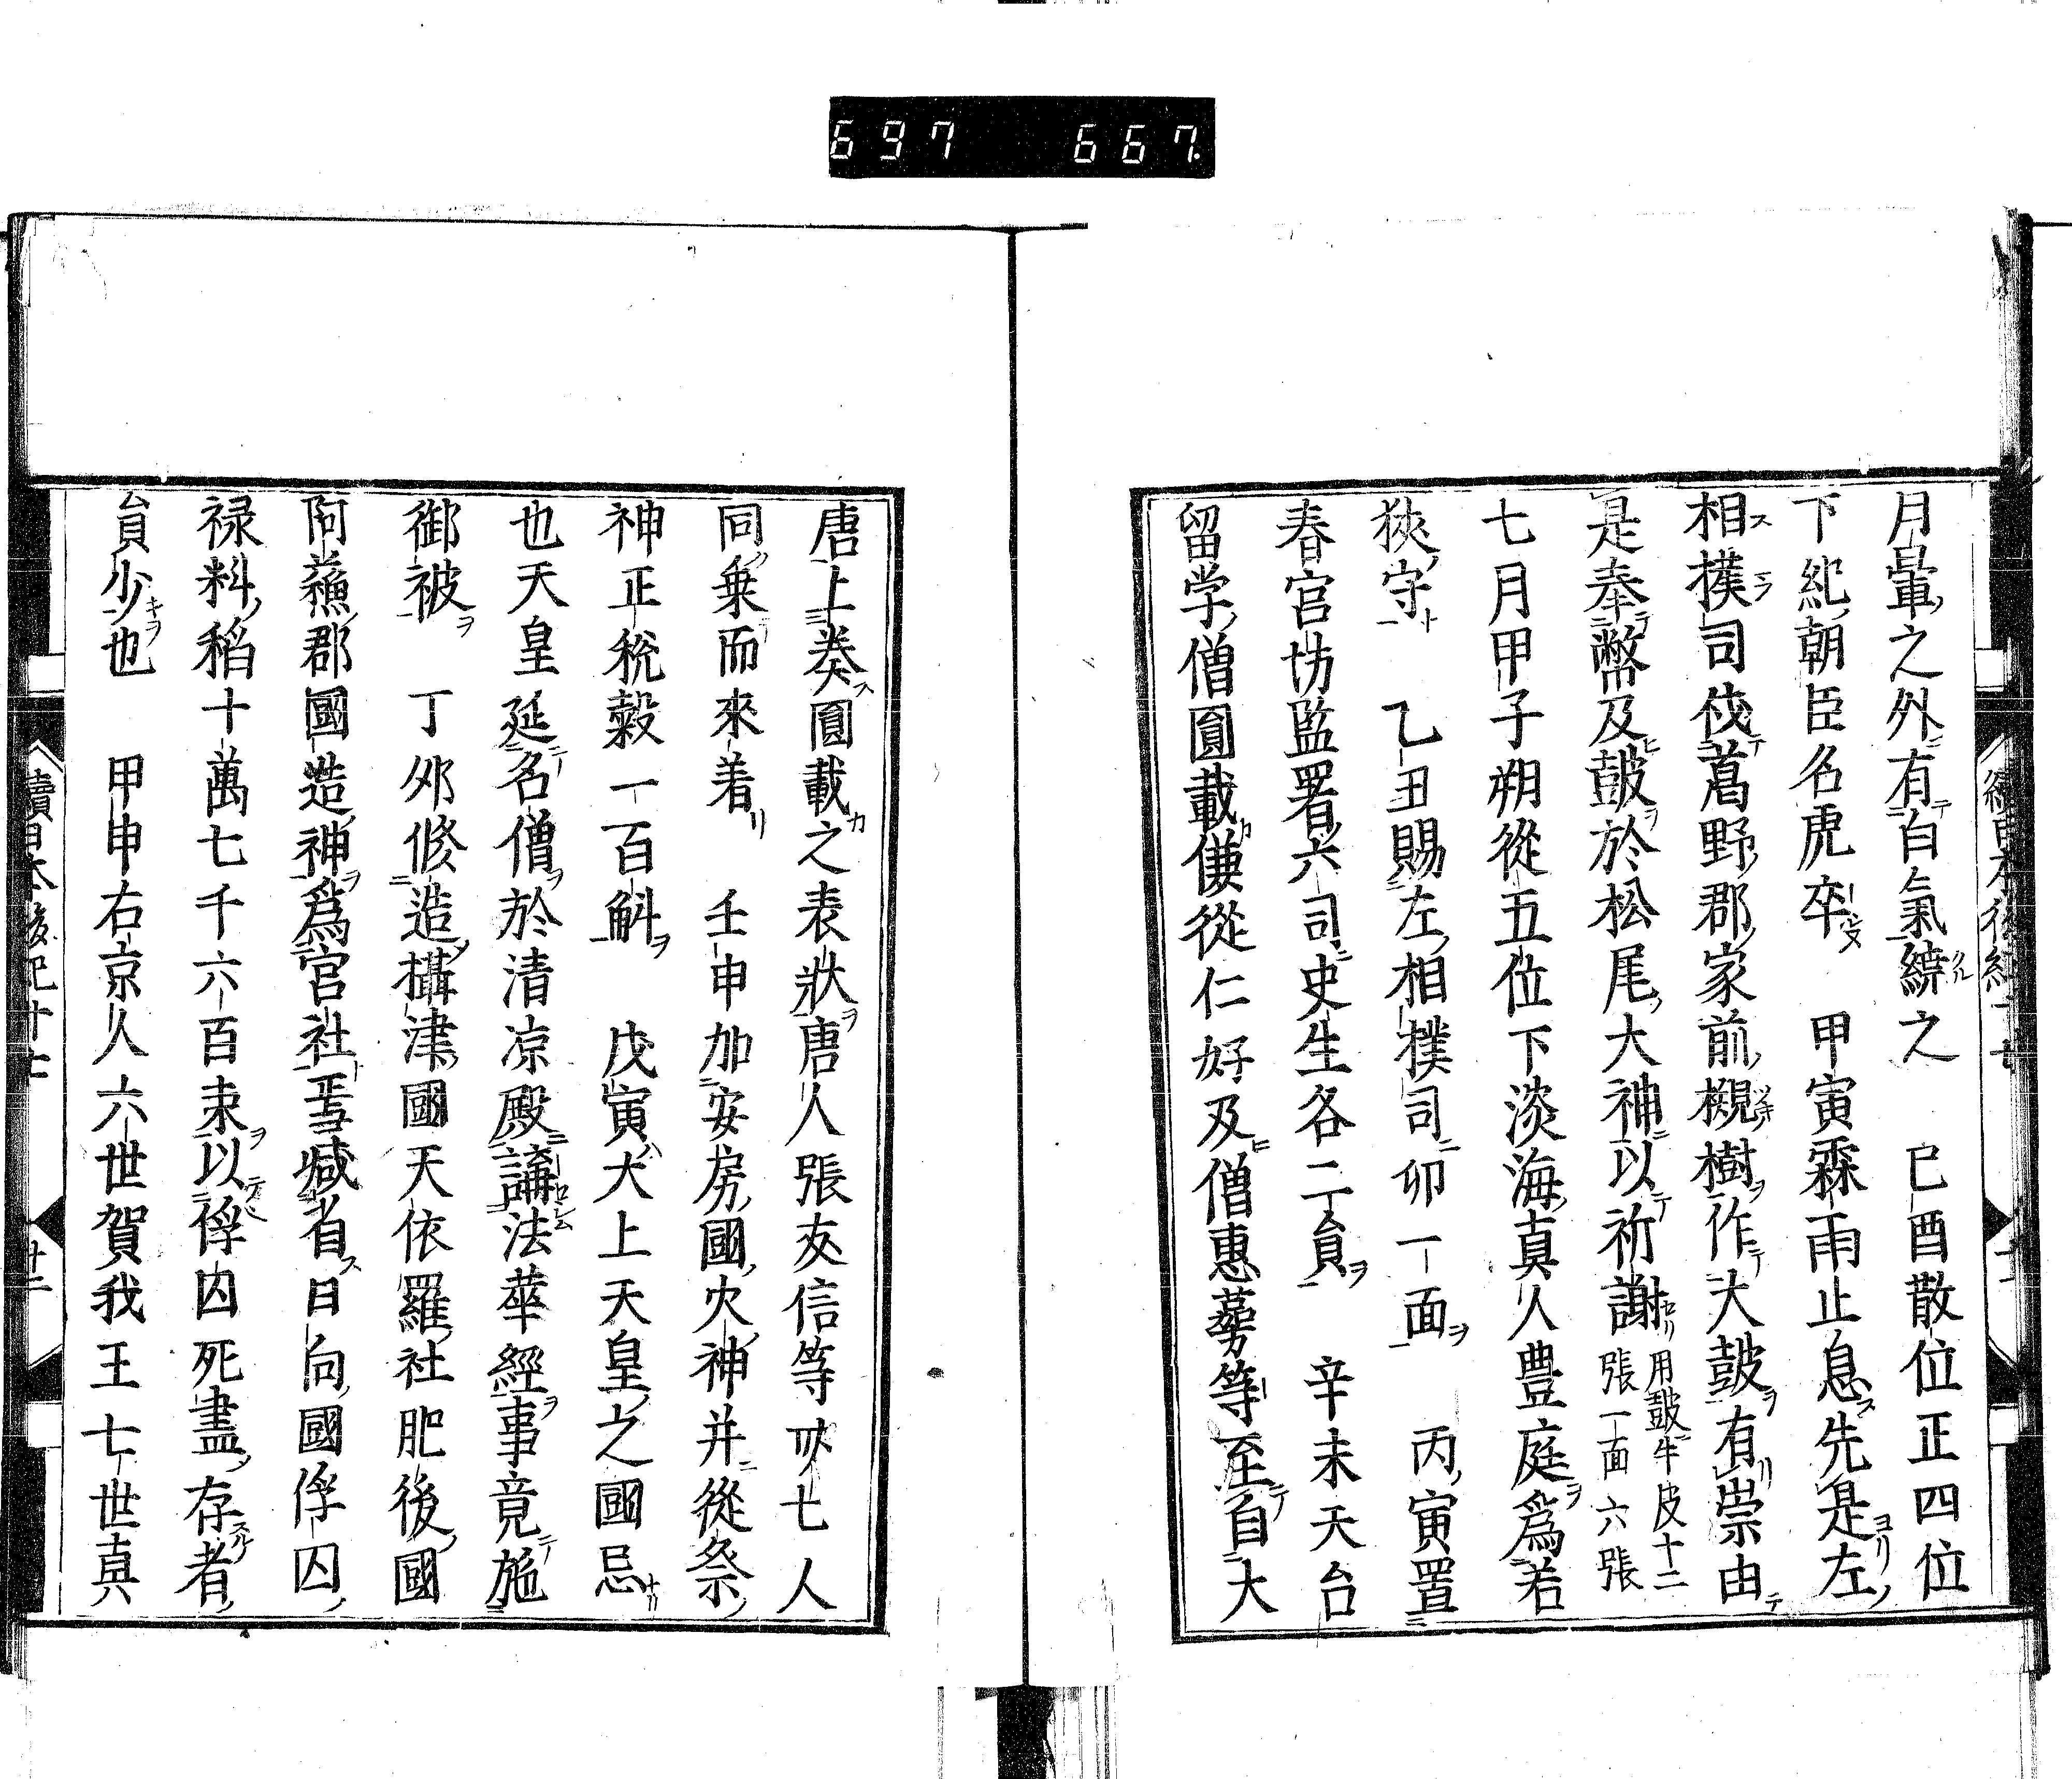 697 667.
月暈之外有白氣繞之 已酉散位正四位
下紀朝臣名虎卒 甲寅霖雨止息先是左
相撲司伐葛野郡家前槻樹作大皷有祟由
是奉幣及皷於松尾大神以祈謝用皷牛皮十二張一面六張
七月甲子朔從五位下淡海真人豊庭爲若
狹守 乙丑賜左相撲司卯一面 丙寅置
春宮坊監署六司史生各二貟 辛未天台
留学僧圓載傔從仁好及僧惠蕚等至自大
唐上奏圓載之表狀唐人張友信等卌七人
同乗而來着 壬申加安房國火神并從祭
神正稅穀一百斛 戊寅大上天皇之國忌
也天皇延名僧於清凉殿講法華經事竟施
御被 丁夘修造攝津國天依羅社肥後國
阿蘓郡國造神爲官社焉减省日向國俘囚
禄料稻十萬七千六百束以俘囚死盡存者
貟少也 甲申右京人六世賀我王七世真
續日本後紀十七
廿二